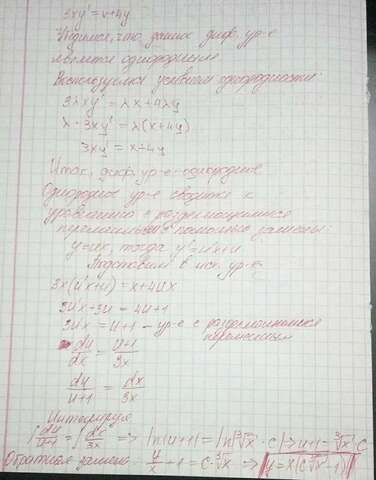 3xy' = x+4y
Убедимся, что данное диф. ур-е
является однородным.
Воспользуемся условием однородности:
3λxy' = λx+4λy
λ·3xy' = λ(x+4y)
3xy' = x+4y
Итак, диф. ур-е - однородное.
Однородное ур-е сводится к
уравнению с разделяющимися
переменными с помощью замены:
y=ux, тогда y'=u'x+u.
Подставим в исх. ур-е:
3x(u'x+u) = x+4ux
3u'x+3u = 4u+1
3u'x = u+1 - ур-е с разделяющимися
переменными
du/dx = u+1/3x
du/u+1 = dx/3x
Интегрируя
∫du/u+1 = ∫dx/3x => ln|u+1| = ln|∛x·C| => u+1 = ∛x·C
Обратная замена: y/x + 1 = C·∛x => y = x(C∛x - 1)